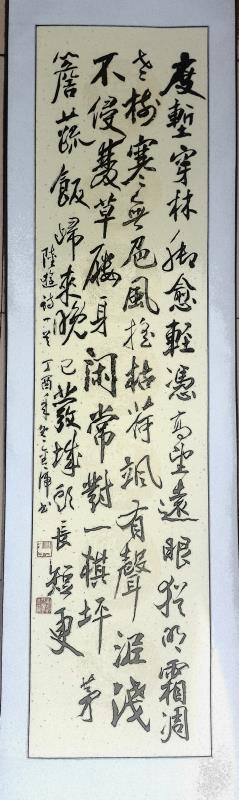 度塹穿林脚愈輕憑高望遠眼猶明霜凋
老樹寒無色風搖枯荷颯有聲泥淺
不侵雙草屨身閑常對一棋坪茅
簷蔬飯歸來晚已發城頭長短更
陸遊詩一首丁酉年冬書